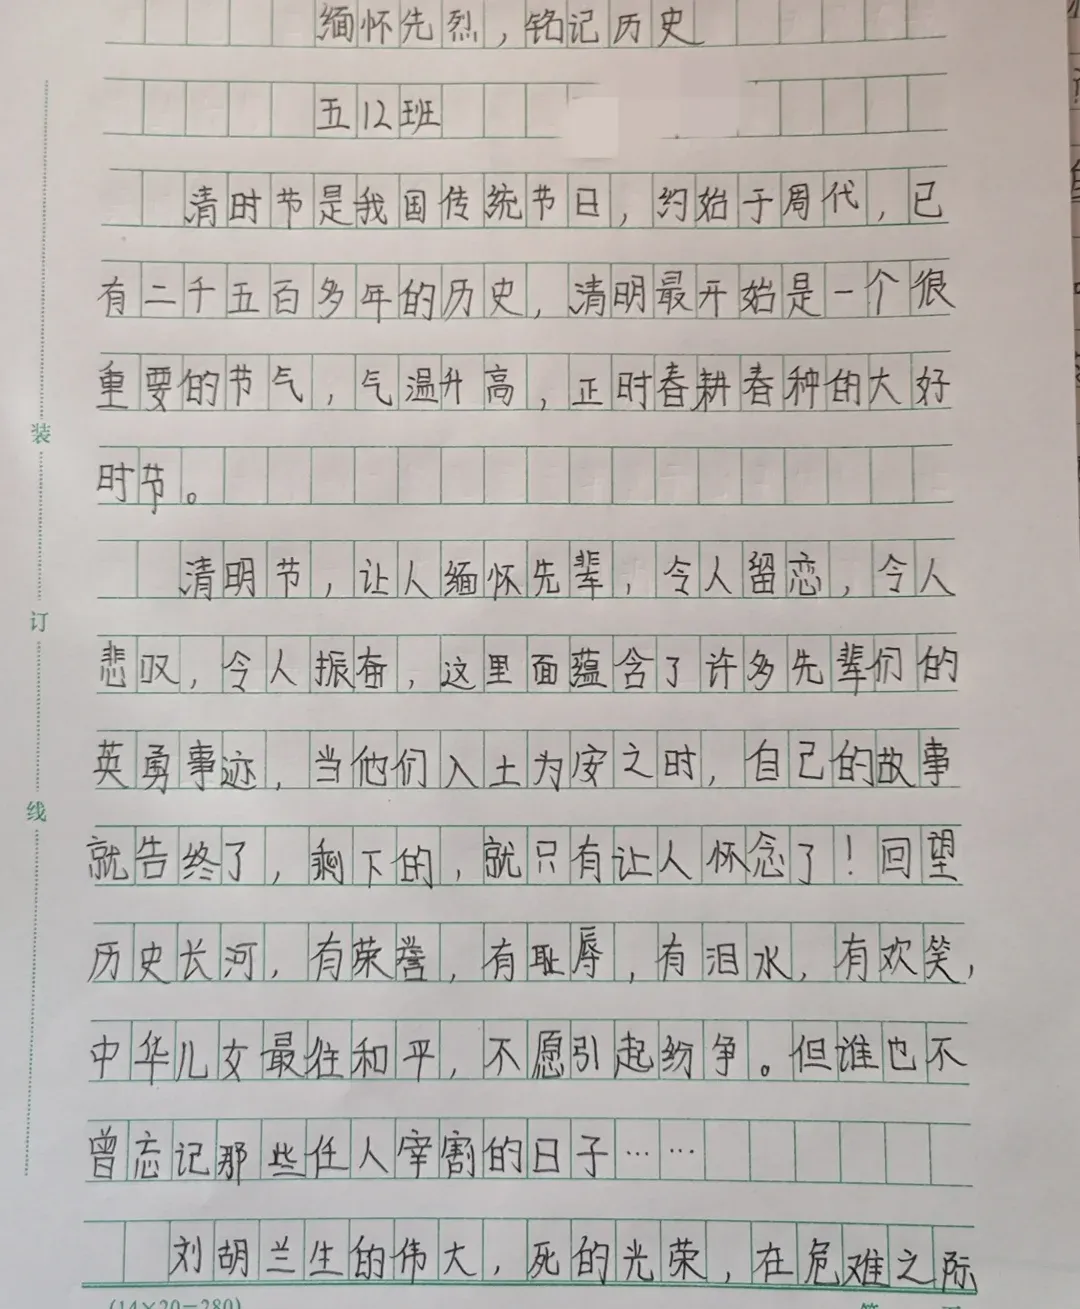 缅怀先烈，铭记历史
五12班
清时节是我国传统节日，约始于周代，已
有二千五百多年的历史，清明最开始是一个很
重要的节气，气温升高，正时春耕春种的大好
时节。
清明节，让人缅怀先辈，令人留恋，令人
悲叹，令人振奋，这里面蕴含了许多先辈们的
英勇事迹，当他们入土为安之时，自己的故事
就告终了，剩下的，就只有让人怀念了！回望
历史长河，有荣誉，有耻辱，有泪水，有欢笑，
中华儿女最往和平，不愿引起纷争。但谁也不
曾忘记那些任人宰割的日子……
刘胡兰生的伟大，死的光荣，在危难之际
装
订
线
(14×20=280)